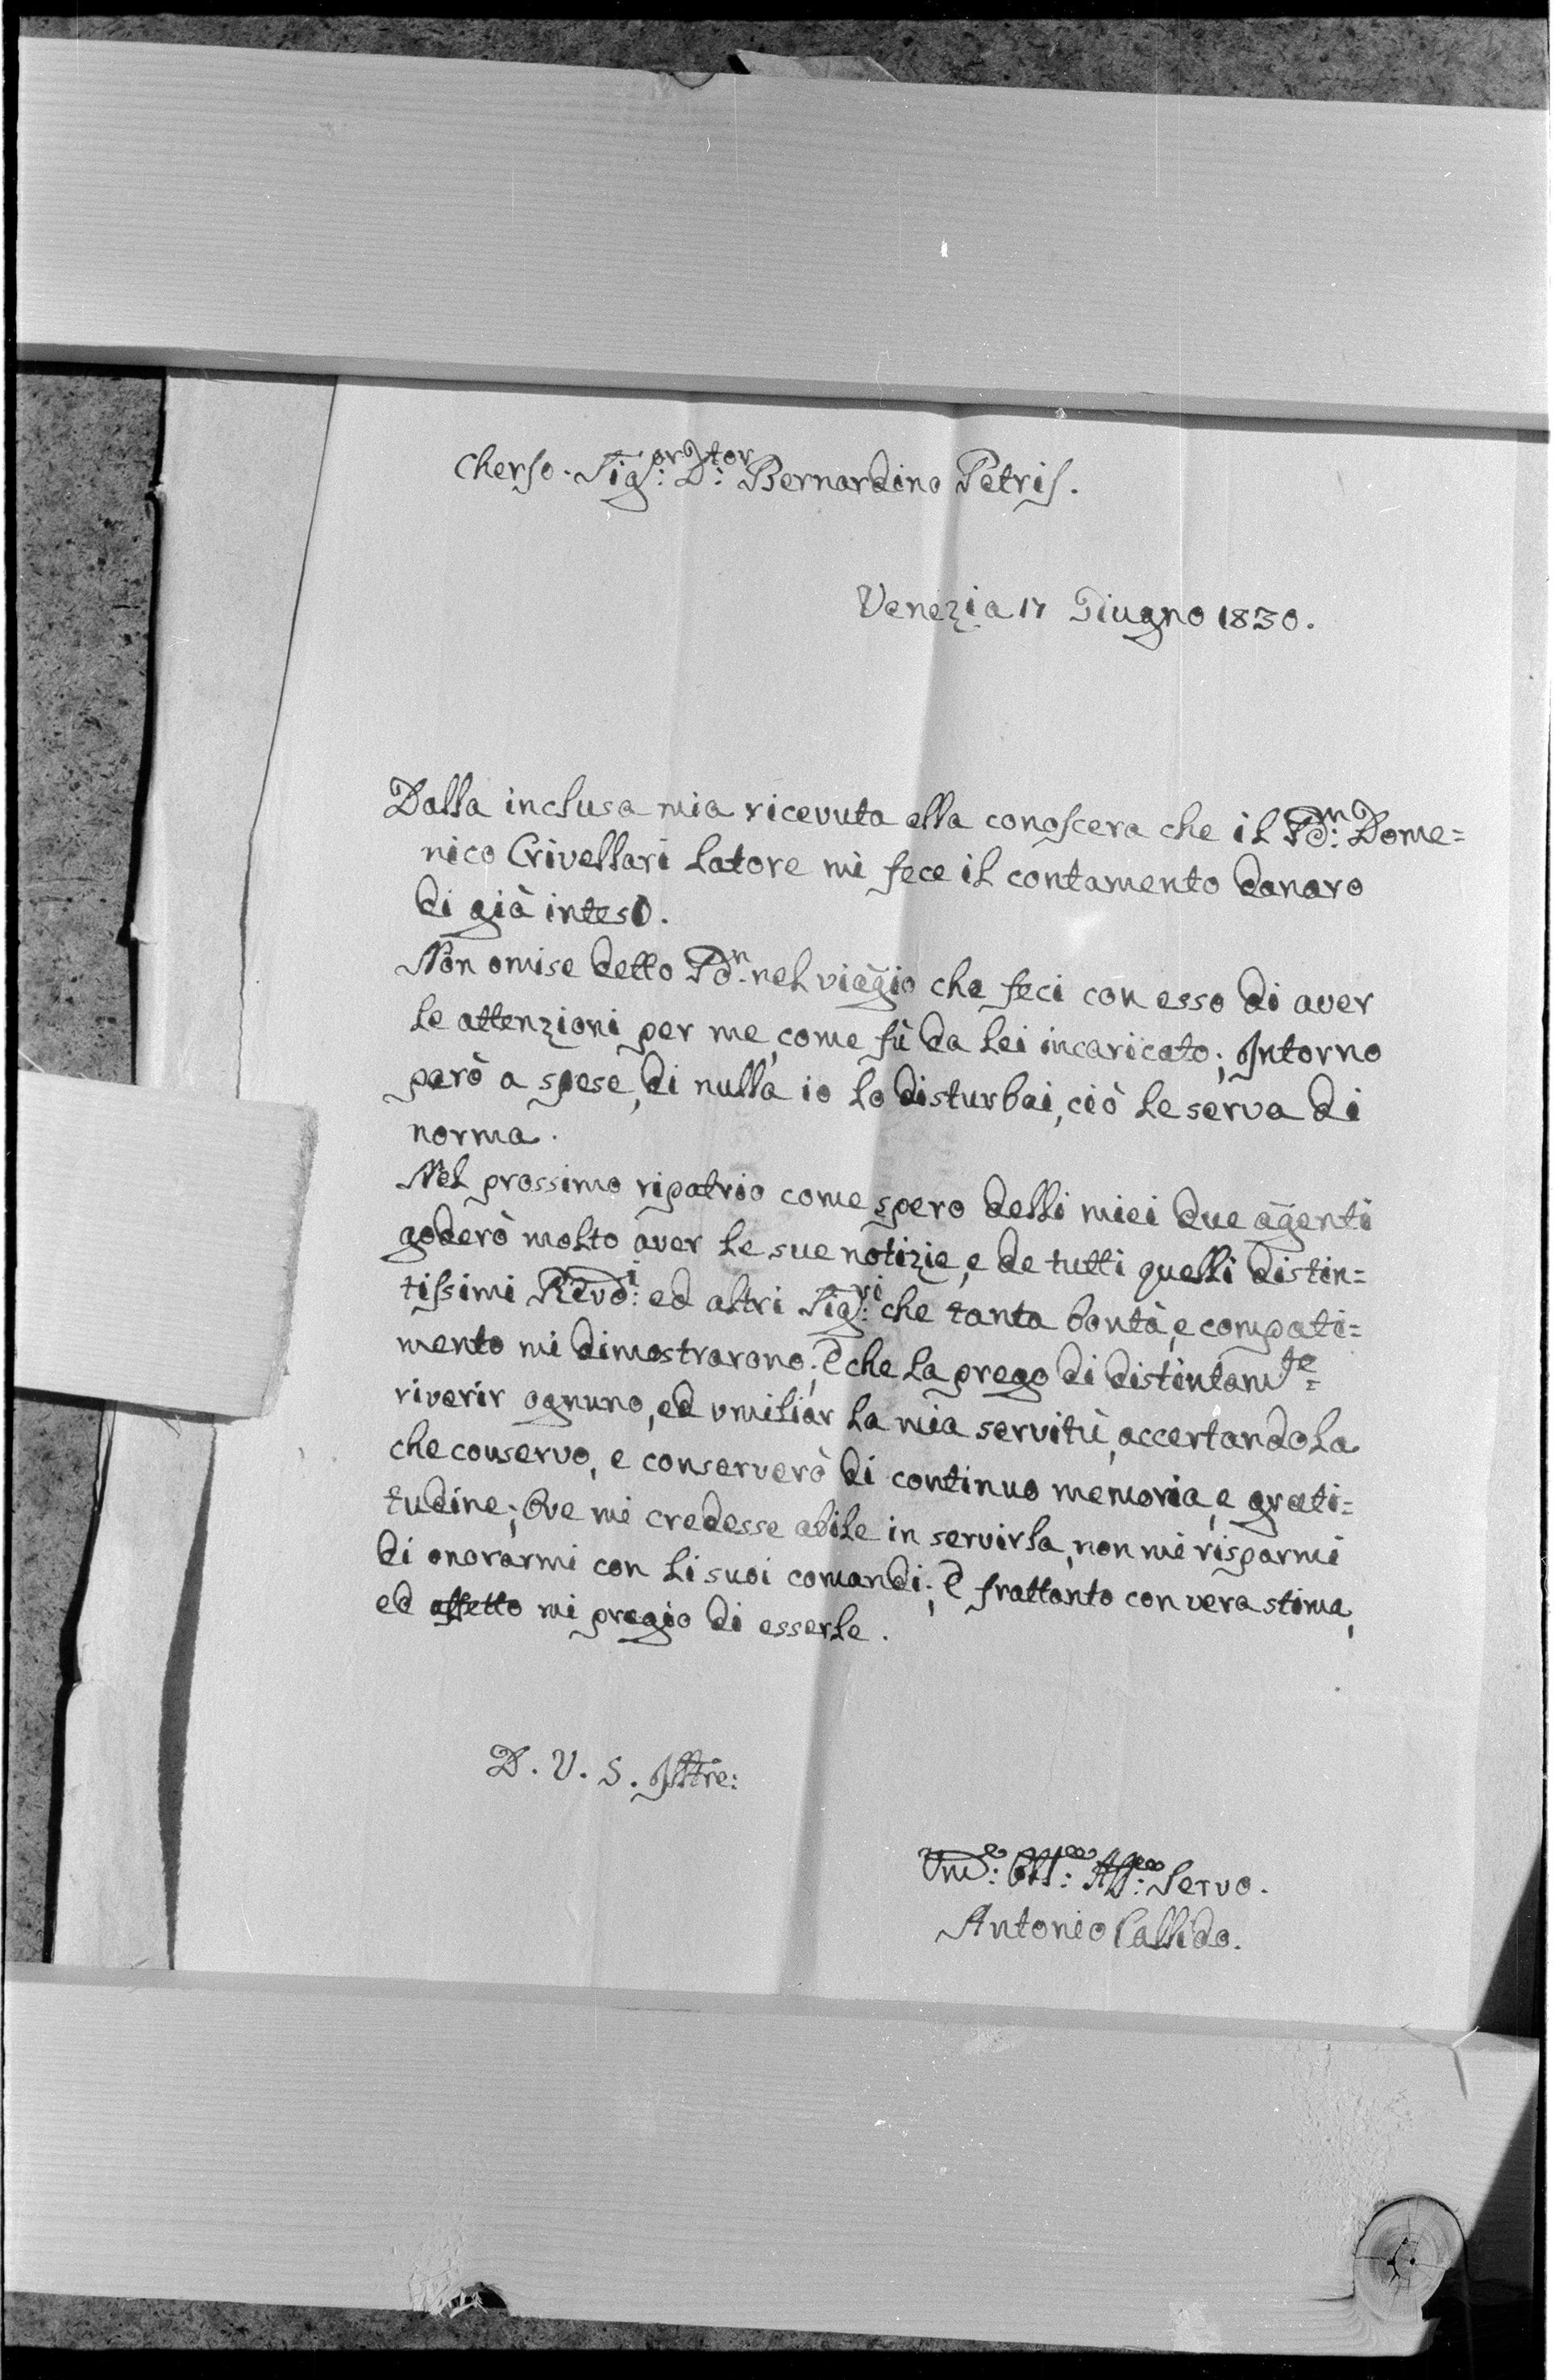 Cherso. Sig:or D:tor Bernardino Petris.
Venezia 17 Giugno 1830.
Dalla inclusa mia ricevuta ella conoscera che il Pd:n Dome=
nico Crivellari latore mi fece il contamento danaro
di già inteso.
Non omise detto Pd:n nel viaggio che feci con esso di aver
le attenzioni per me, come fù da lei incaricato; Intorno
però a spese, di nulla io lo disturbai, ciò le serva di
norma.
Nel prossimo ripatrio come spero delli miei due agenti
goderò molto aver le sue notizie, e de tutti quelli distin=
tissimi Revd:i ed altri Sig:ri che tanta bontà, e compati=
mento mi dimostrarono; E che la prego di distintamte=
riverir ognuno, ed umiliar la mia servitù, accertandola
che conservo, e conserverò di continuo memoria, e grati=
tudine; Ove mi credesse abile in servirla, non mi risparmi
di onorarmi con li suoi comandi; E frattanto con vera stima,
ed affetto mi pregio di esserle.
D. V. S. Illtre:
Servo.
Antonio Callido.